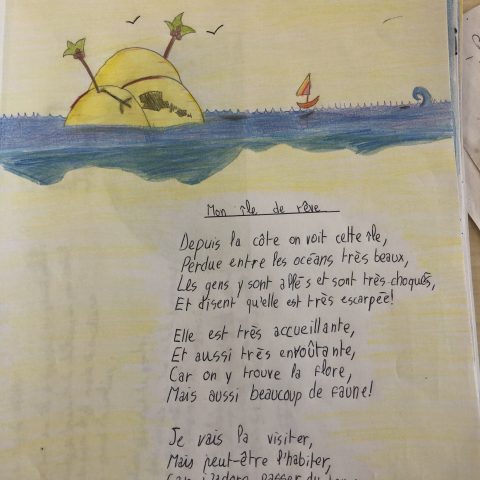 Mon île de rêve
Depuis la côte on voit cette île,
Perdue entre les océans très beaux,
Les gens y sont allés et sont très choqués,
Et disent qu'elle est très escarpée!
Elle est très accueillante,
Et aussi très envoûtante,
Car on y trouve la flore,
Mais aussi beaucoup de faune!
Je vais la visiter,
Mais peut-être l'habiter,
Car j'adore passer du